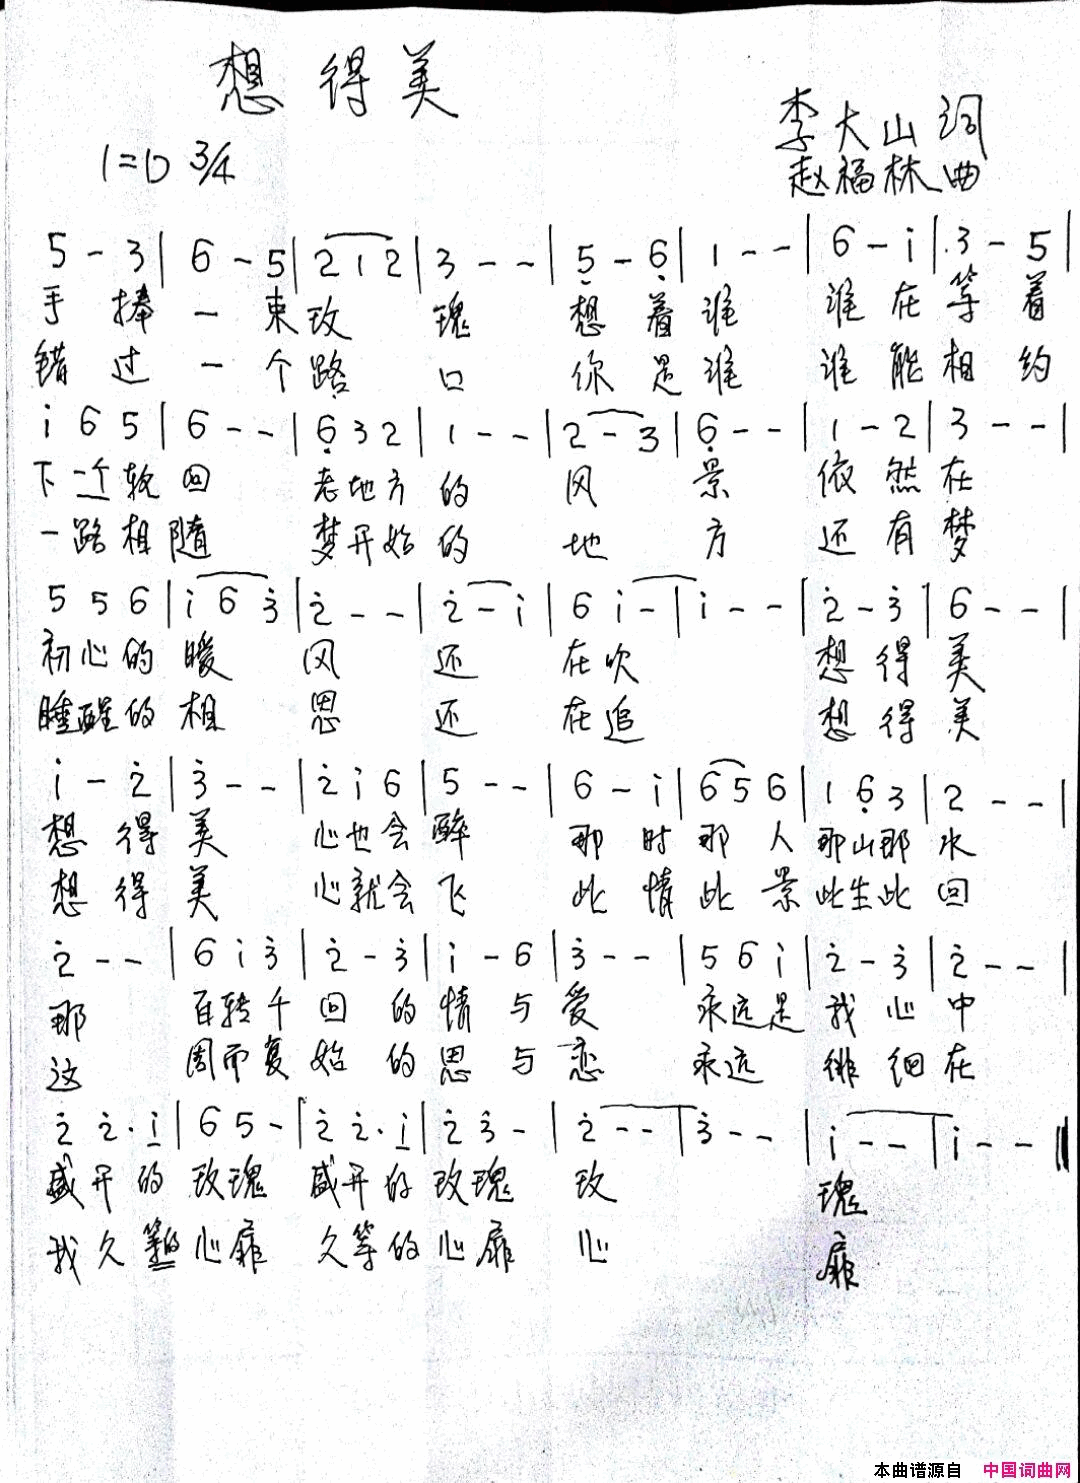 想得美
李大山 词
1=D 3/4
赵福林 曲
5 - 3 | 6 - 5 | 2 1 2 | 3 - - | 5̣ - 6̣ | 1 - - | 6 - i | 3 - 5 |
手捧一束玫瑰 想着谁 谁在等着
错过一个路口 你是谁 谁能相约
i 6 5 | 6 - - | 6̣ 3 2 | 1 - - | 2 - 3 | 6̣ - - | 1 - 2 | 3 - - |
下一个轮回 老地方的风景 依然在
一路相随 梦开始的地方 还有梦
5 5 6 | i 6 3̇ | 2̇ - - | 2̇ - i | 6 i - | i - - | 2̇ - 3̇ | 6 - - |
初心的暖风还在吹 想得美
睡醒的相思还在追 想得美
i - 2̇ | 3̇ - - | 2̇ i 6 | 5 - - | 6 - i | 6 5 6 | 1 6̣ 3 | 2 - - |
想得美 心也会醉 那时那人那山那水
想得美 心就会飞 此情此景此生此回
2̇ - - | 6 i 3̇ | 2̇ - 3̇ | i - 6 | 3̇ - - | 5 6 i | 2̇ - 3̇ | 2̇ - - |
那 百转千回的情与爱 永远是我心中
这 周而复始的思与恋 永远徘徊在
2̇ 2̇. i | 6 5 - | 2̇ 2̇. i | 2̇ 3̇ - | 2̇ - - | 3̇ - - | i - - | i - - ‖
盛开的玫瑰 盛开的玫瑰 玫瑰
我久等的心扉 久等的心扉 心扉
本曲谱源自 中国词曲网